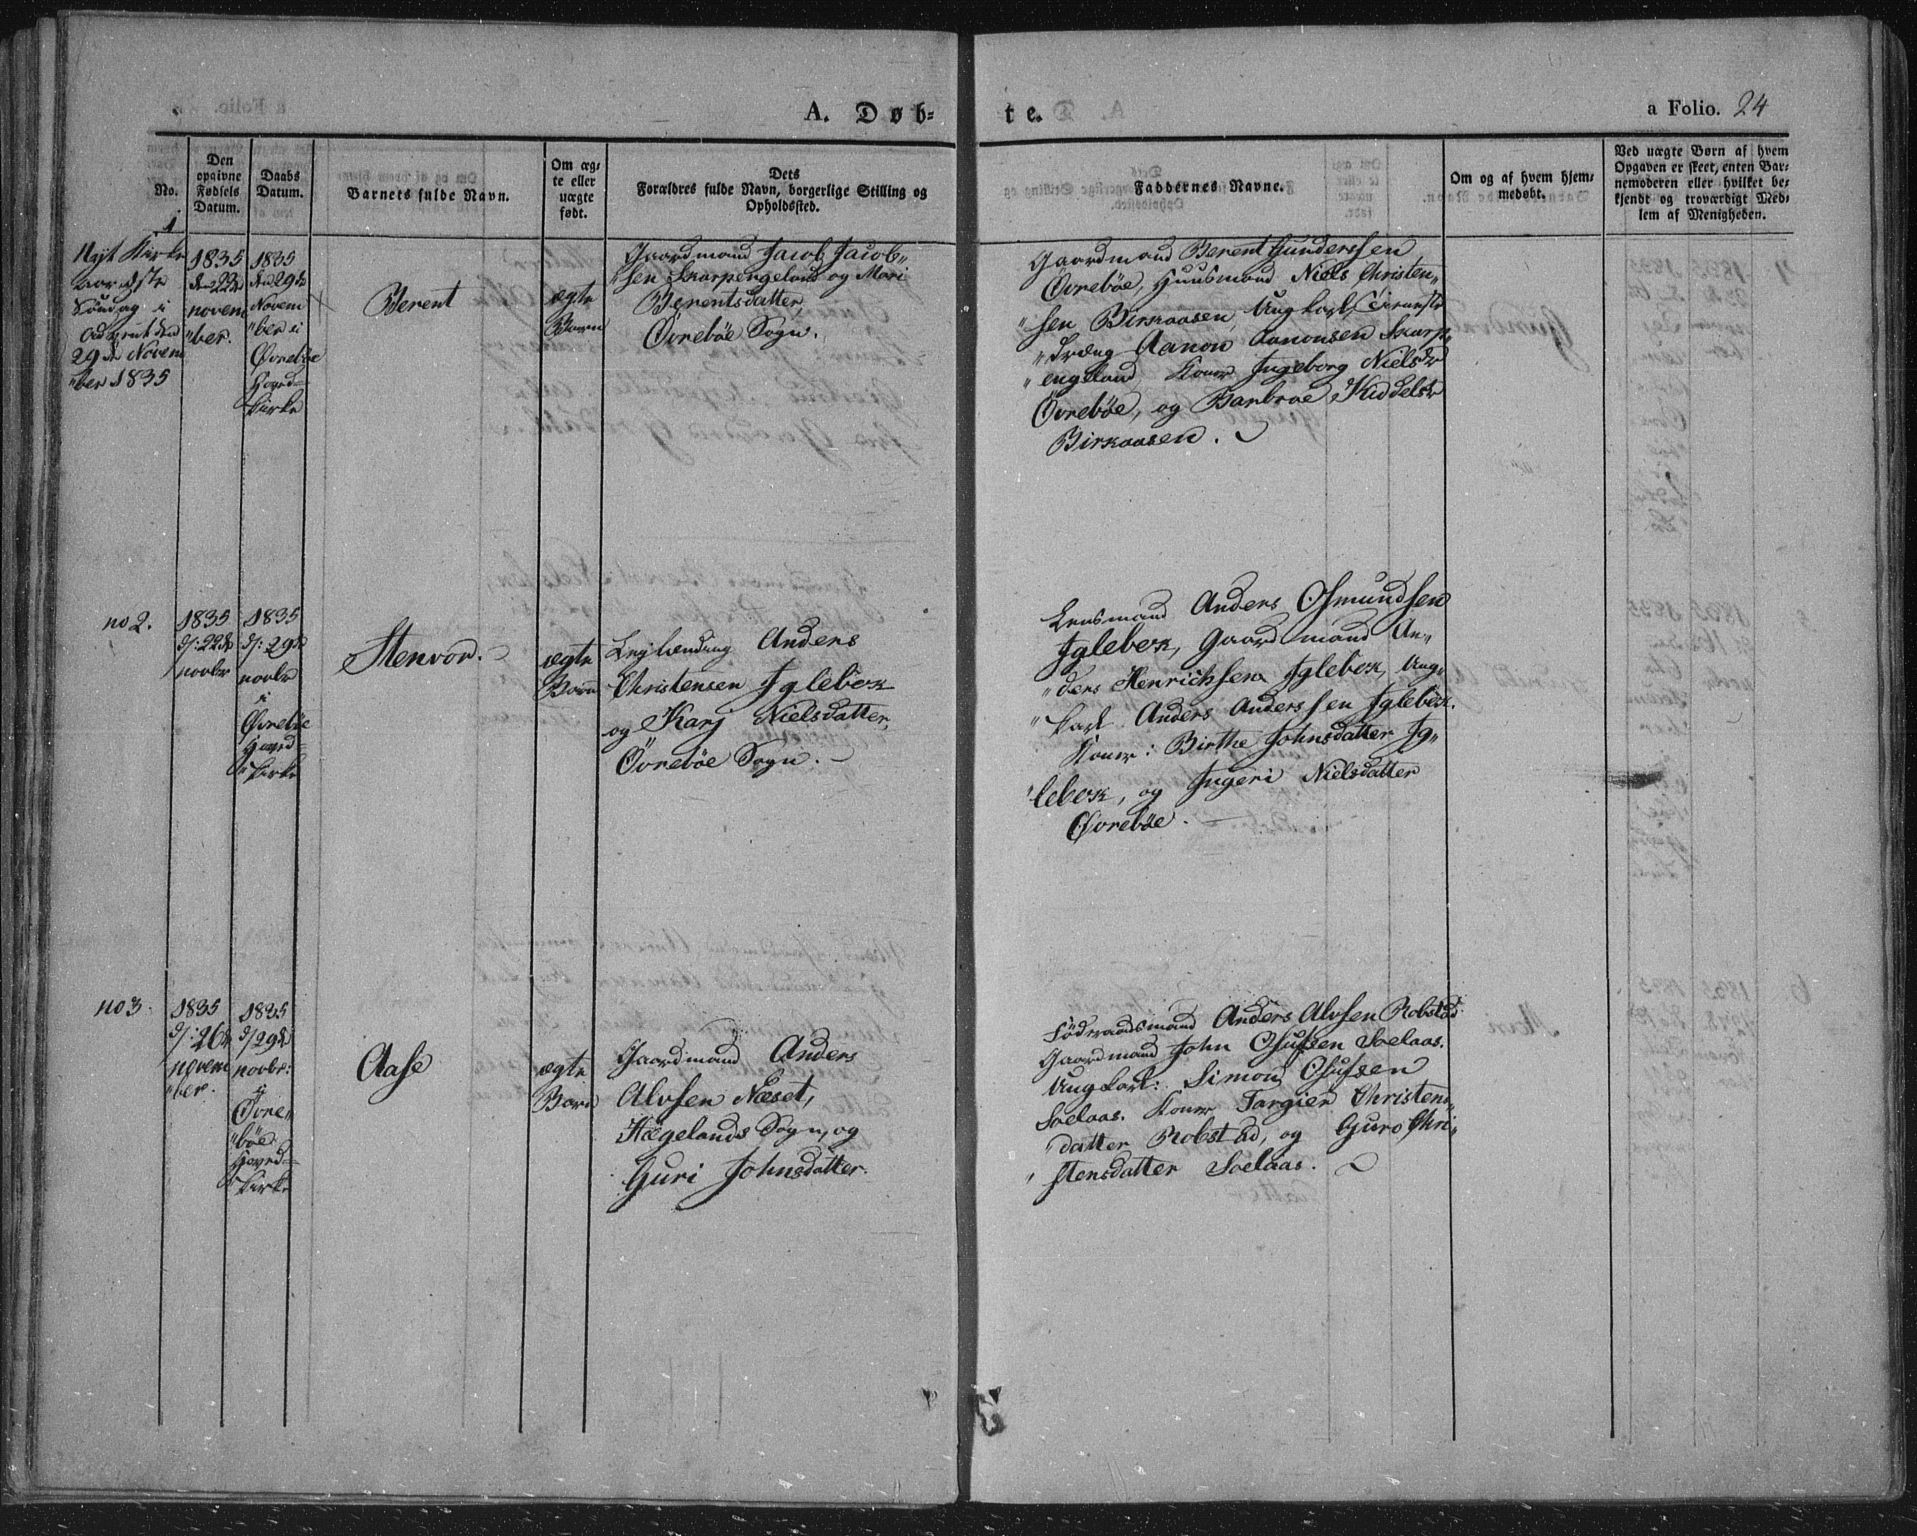 A. Døb=
te.
a Folio. 24
No.
Den
opgivne
Fødsels
Datum.
Daabs
Datum.
Barnets fulde Navn.
Om æg=
te eller
uægte
født.
Dets
Forældres fulde Navn, borgerlige Stilling og
Opholdssted.
Faddernes Navne.
Om og af hvem hjem=
medøbt.
Ved uægte Børn af hvem
Opgaven er skeet, enten Bar=
nemoderen eller hvilket be=
kjendt og troværdigt Med=
lem af Menigheden.
1
Nyt Kirke
aar 1ste
Søndag i
Advent den
29de Novem
"ber 1835
1835
d. 22de
novem
"ber.
1835
den 29de
Novem
"ber i
Øvrebøe
Hoved=
kirke
Berent
ægte
Barn
Gaardmand Jacob Jacob"
"sen Skarpengeland og Mari
Berentsdatter,
Øvrebøe Sogn.
Gaardmand Berent Gunderssen
Øvrebøe, Huusmand Niels Christen"
"sen Birkaasen, Ungkarl,
"dræng Aanon Aanonsen Skarp"
"engeland, Koner Ingeborg Nielsdr
Øvrebøe, og Barbroe Kiddelsdr
Birkaasen.
no 2.
1835
d: 22de
novbr
1835
d: 29de
novbr
i
Øvrebøe
Hoved=
"kirke
Stenvor.
ægte
Barn
Leylænding Anders
Christensen Iglebek
og Karj Nielsdatter,
Øvrebøe Sogn.
Lensmand Anders Osmundsen
Iglebek, Gaardmand An"
"ders Henrichsen Iglebek, Ung"
"karl Anders Anderssen Iglebek.
Koner: Birthe Johnsdatter Ig"
"lebek, og Ingeri Nielsdatter
Øvrebøe.
no 3.
1835
d: 26de
novem
"ber.
1835
d 29de
novbr:
i
Øvre"
"bøe
Hoved=
"kirke
Aase
ægte
Barn
Gaardmand Anders
Alvsen Næset,
Hægelands Sogn, og
Guri Johnsdatter.
Föderaadsmand Anders Alvsen Robstad
Gaardmand John Osufsen Soelaas.
Ungkarl: Simon Osufsen
Soelaas. Koner Targier Christens"
"datter Robstad, og Guro Chri"
"stensdatter Soelaas.